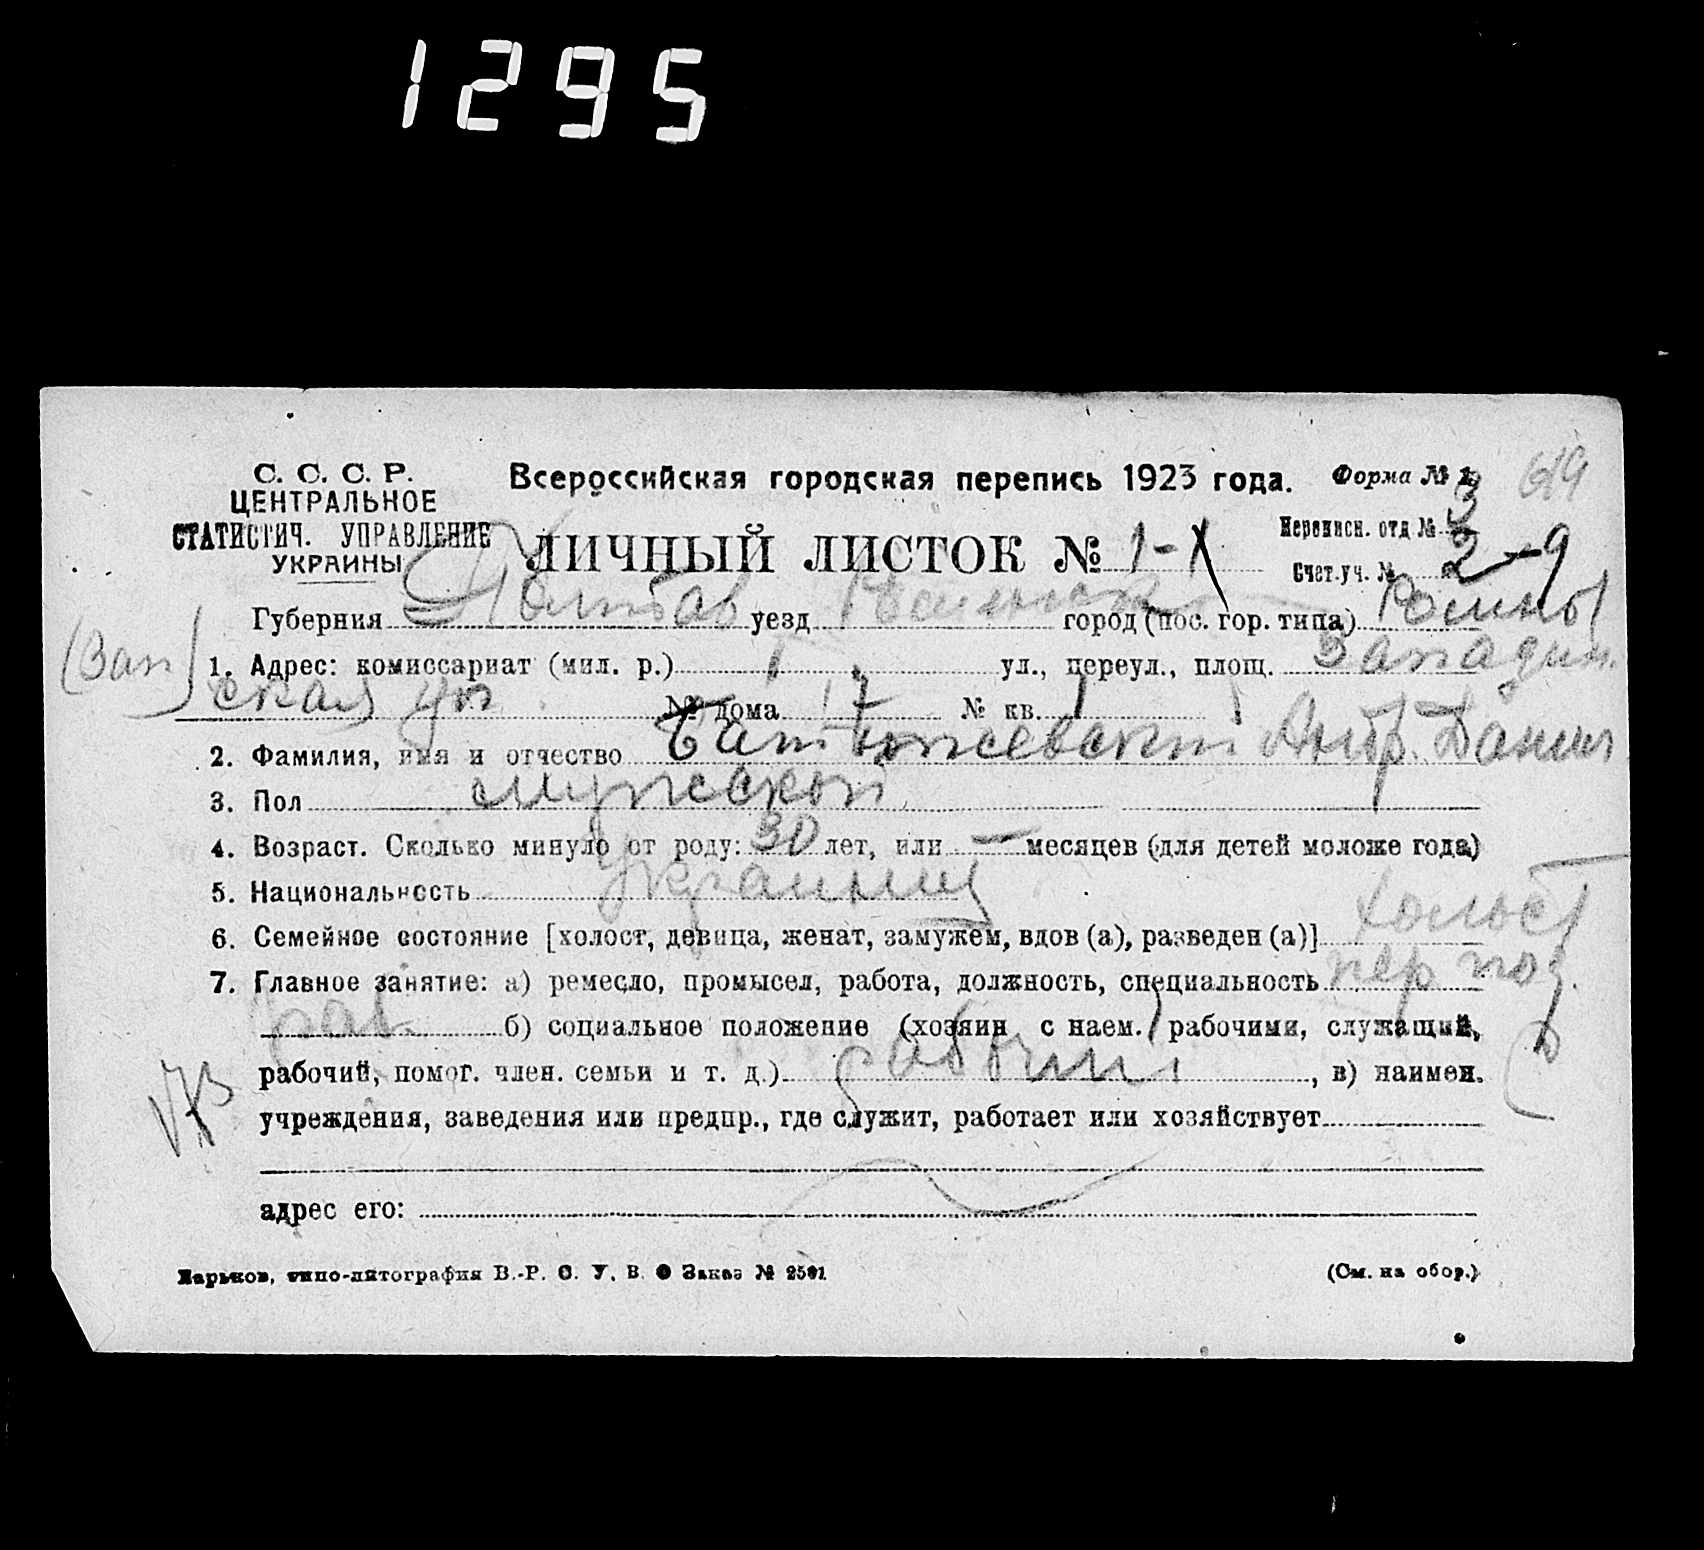 1295
С. С. С. Р.
ЦЕНТРАЛЬНОЕ
СТАТИСТИЧ. УПРАВЛЕНИЕ
УКРАИНЫ
Всероссийская городская перепись 1923 года.
Форма № 1
ЛИЧНЫЙ ЛИСТОК № 1-
Переписн. отд № 3
Счет.уч. № 2-9
Губерния Полтав уезд Роменск город (пос. гор. типа) Ромны
(Зап) 1. Адрес: комиссариат (мил. р.) 1 ул., переул., площ.
ская ул № дома 17 № кв. 1
2. Фамилия, имя и отчество
3. Пол мужской
4. Возраст. Сколько минуло от роду: 30 лет, или — месяцев (для детей моложе года)
5. Национальность Украинец
6. Семейное состояние [холост, девица, женат, замужем, вдов (а), разведен (а)] холост
7. Главное занятие: а) ремесло, промысел, работа, должность, специальность
раб. б) социальное положение (хозяин с наем. рабочими, служащий,
рабочий, помог. член. семьи и т. д.) рабочий, в) наимен.
учреждения, заведения или предпр., где служит, работает или хозяйствует
адрес его:
Харьков, типо-литография В.-Р. С. У. В. О Заказ № 2501
(См. на обор.)